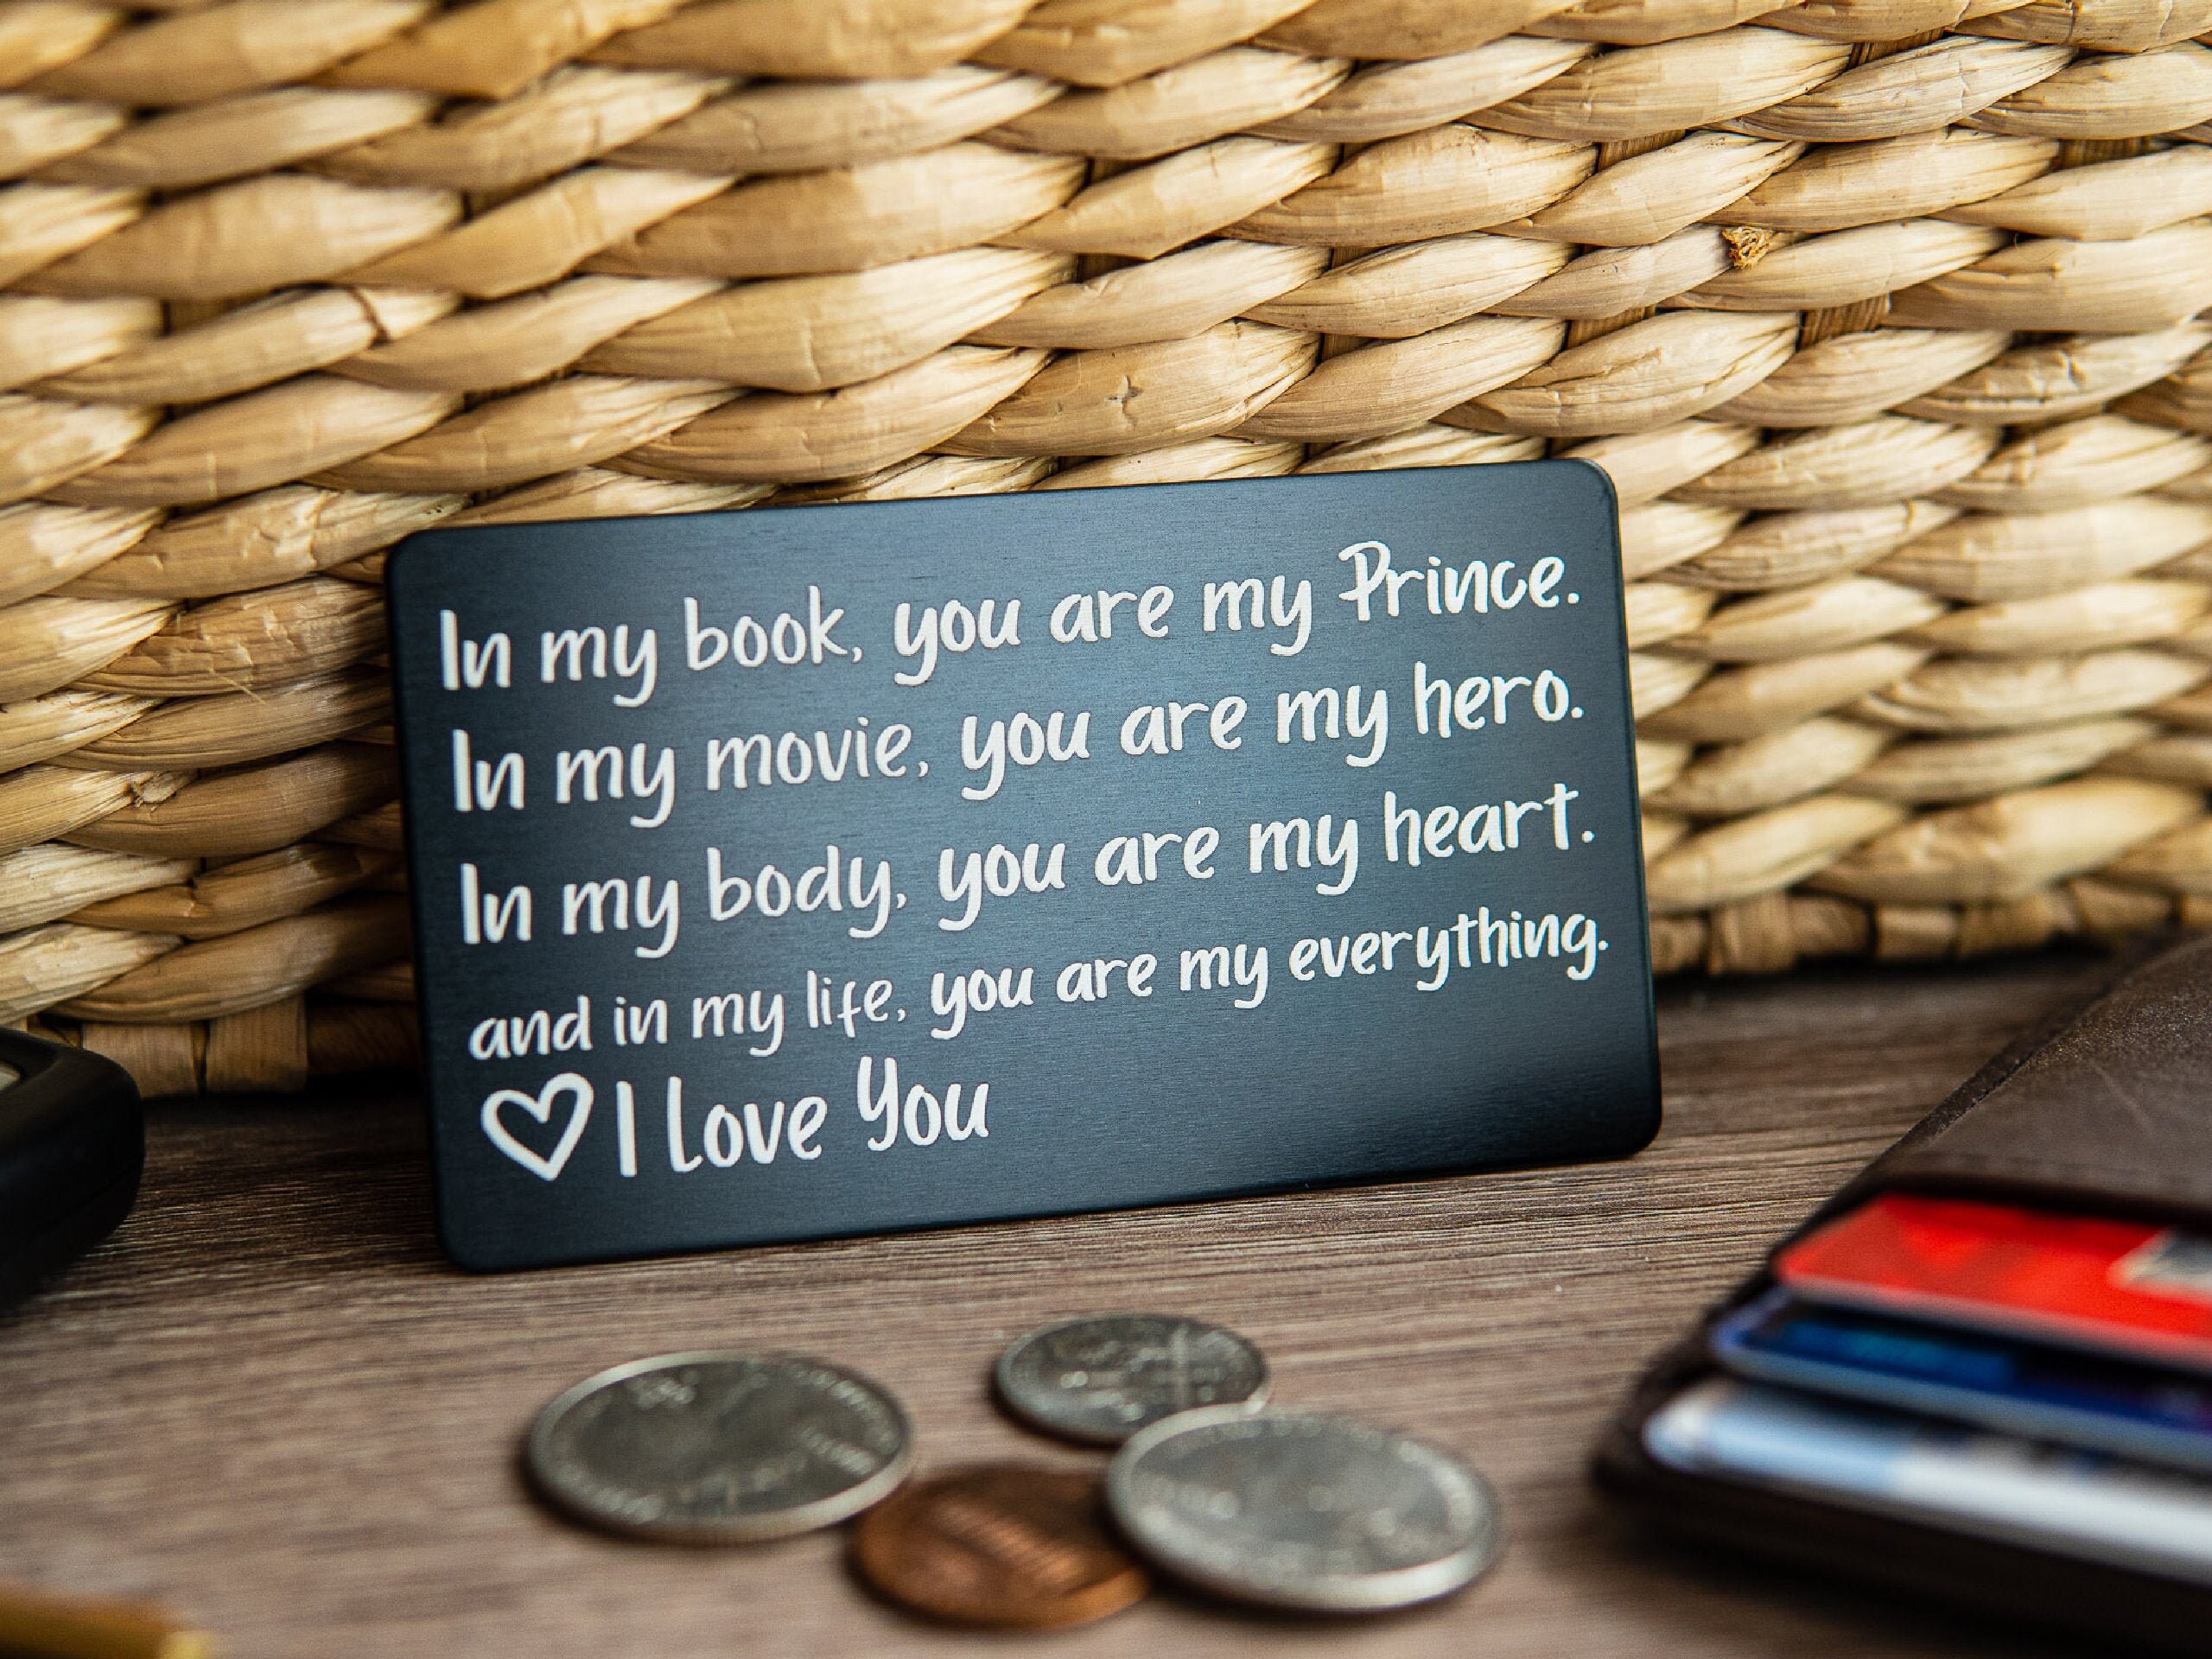 In my book, you are my Prince.
In my movie, you are my hero.
In my body, you are my heart.
and in my life, you are my everything.
I Love You